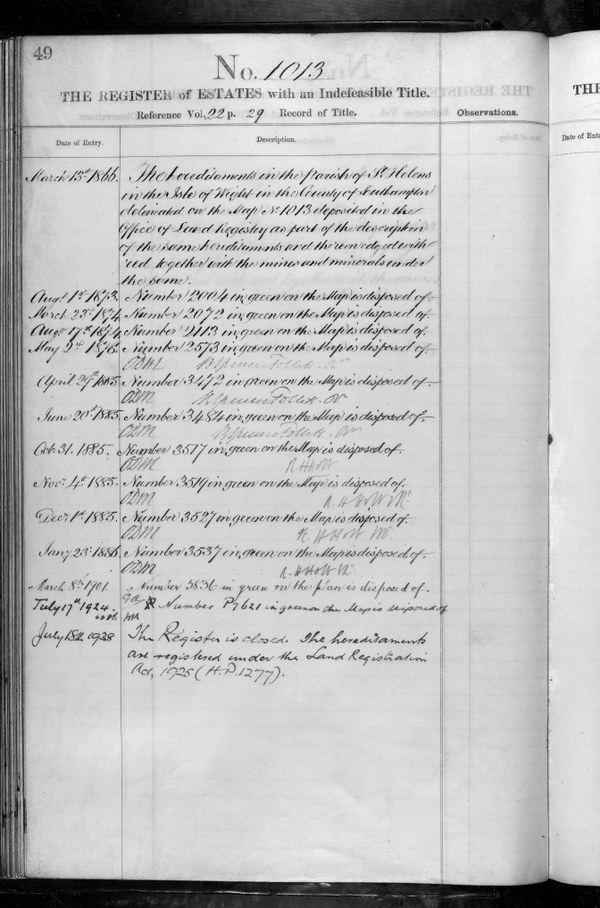 49
No. 1013
THE REGISTER of ESTATES with an Indefeasible Title.
Reference Vol. 22 p. 29 Record of Title.
Observations.
Date of Entry.
Description.
March 15th 1866.
The hereditaments in the Parish of St Helens
in the Isle of Wight in the County of Southampton
delineated on the Map No 1013 deposited in the
Office of Land Registry as part of the description
of the same hereditaments and thereon edged with
red together with the mines and minerals under
the same.
Augt 1st 1873. Number 2004 in green on the Map is disposed of.
March 23rd 1874. Number 2072 in green on the Map is disposed of.
Augt 17th 1874. Number 2113 in green on the Map is disposed of.
May 2nd 1876. Number 2573 in green on the Map is disposed of.
ODM
April 29th 1885. Number 3472 in green on the Map is disposed of.
ODM
June 20th 1885. Number 3484 in green on the Map is disposed of.
ODM
Oct. 31. 1885. Number 3517 in green on the Map is disposed of.
ODM R H Holt
Novr 4th 1885. Number 3519 in green on the Map is disposed of.
ODM R H Holt
Decr 1st 1885. Number 3527 in green on the Map is disposed of.
ODM R H Holt
Jany 23rd 1886. Number 3537 in green on the Map is disposed of.
ODM R H Holt
March 8th 1901. Number 5836 in green on the plan is disposed of.
July 17th 1924 Number P7621 in green on the Map is disposed of
July 18th 1938 The Register is closed. The hereditaments
are registered under the Land Registration
Act, 1925 (H.P. 1277).
THE
Date of Ent